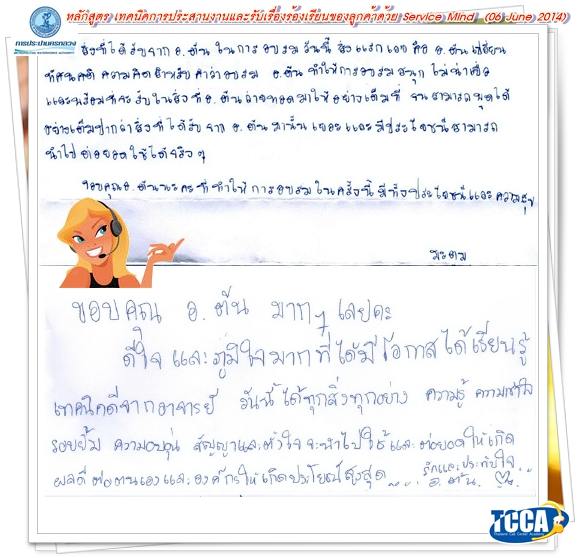 หลักสูตร เทคนิคการประสานงานและรับเรื่องร้องเรียนของลูกค้าด้วย Service Mind (06 June 2014)
การประปานครหลวง
สิ่งที่ได้รับจาก อ.ต้น ในการอบรมวันนี้ สิ่งแรกเลย คือ อ.ต้นเปลี่ยน
ทัศนคติ ความคิดสำหรับคำว่าอบรม อ.ต้นทำให้การอบรมสนุก ไม่น่าเบื่อ
และพร้อมที่จะรับในสิ่งที่ อ.ต้นถ่ายทอดมาให้อย่างเต็มที่ จนสามารถพูดได้
อย่างเต็มปากว่าสิ่งที่ได้รับจาก อ.ต้นมานั้นเยอะและมีประโยชน์สามารถ
นำไปต่อยอดใช้ได้จริงๆ
ขอบคุณอ.ต้นนะคะที่ทำให้การอบรมในครั้งนี้ มีทั้งประโยชน์และความสุข
ขอบคุณ อ.ต้น มากๆ เลยคะ
ดีใจ และภูมิใจมากที่ได้มีโอกาสได้เรียนรู้
เทคนิคดีจากอาจารย์ วันนี้ได้ทุกสิ่งทุกอย่าง ความรู้ ความเข้าใจ
รอยยิ้ม ความอบอุ่น สัญญาและตั้งใจจะนำไปใช้และต่อยอดให้เกิด
ผลดีต่อตนเองและองค์กรให้เกิดประโยชน์สูงสุด
รักและประทับใจ
อ.ต้น
TCCA
Thailand Call Center Academy